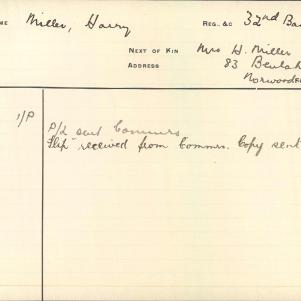 ME Miller, Harry REG. &C 32nd Ba
NEXT OF KIN Mrs H. Miller
ADDRESS 83 Beulah
Norwood
1/P P/c sent Commrs
Slip received from Commrs. Copy sent